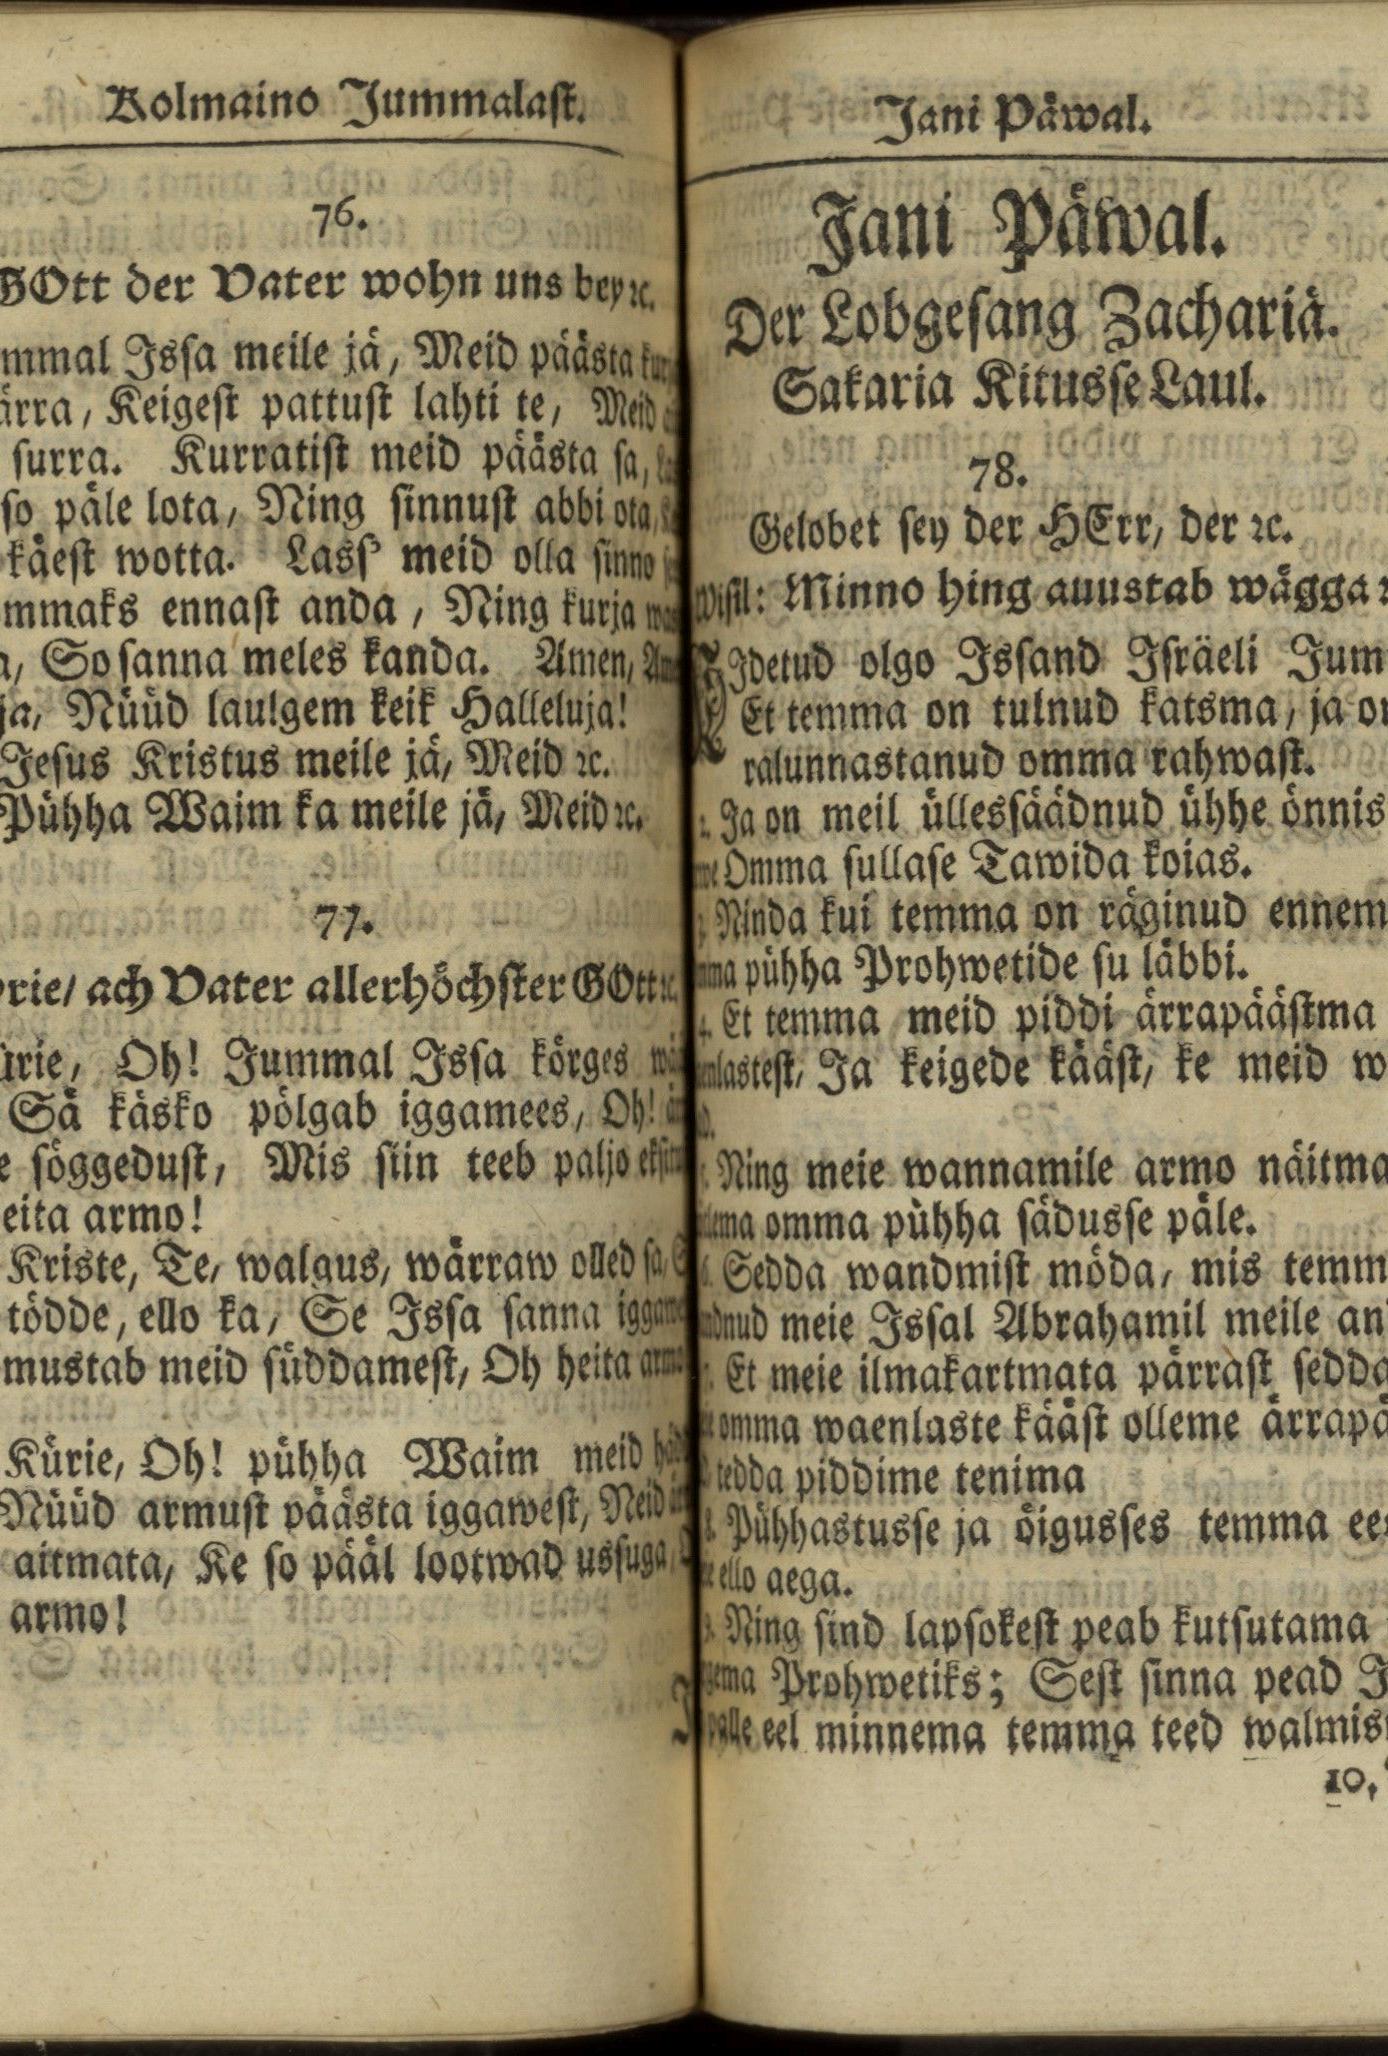 Kolmaino Jummalast.
76.
GOtt der Vater wohn uns bey ꝛc.
Issa meile jä, Meid päästa
ärra, Keigest pattust lahti te, Meid
surra. Kurratist meid päästa sa,
so päle lota, Ning sinnust abbi ota,
käest wotta. Lass' meid olla sinno
ennast anda, Ning kurja
So sanna meles kanda. Amen,
Nüüd laulgem keik Halleluja!
Jesus Kristus meile jä, Meid ꝛc.
Pühha Waim ka meile jä, Meid ꝛc.
77.
ach Vater allerhöchster GOtt ꝛc.
Oh! Jummal Issa körges
Sä käsko pölgab iggamees, Oh!
söggedust, Mis siin teeb paljo
armo!
Kriste, Te, walgus, wärraw olled sa,
tödde, ello ka, Se Issa sanna
meid süddamest, Oh heita
Kürie, Oh! pühha Waim meid
Nüüd armust päästa iggawest, Neid
aitmata, Ke so pääl lootwad ussuga,
armo!
Jani Päwal.
Jani Päwal.
Der Lobgesang Zachariä.
Sakaria Kitusse Laul.
78.
Gelobet sey der HErr, der ꝛc.
Wisil: Minno hing auustab wägga
Kidetud olgo Issand Isräeli Jum
Et temma on tulnud katsma, ja on
ralunnastanud omma rahwast.
Ja on meil üllessäädnud ühhe önnis
Omma sullase Tawida koias.
Ninda kui temma on räginud ennem
pühha Prohwetide su läbbi.
4. Et temma meid piddi ärrapäästma
Ja keigede kääst, ke meid w
Ning meie wannamile armo näitma
omma pühha sädusse päle.
Sedda wandmist möda, mis temm
meie Issal Abrahamil meile an
Et meie ilmakartmata pärrast sedda
omma waenlaste kääst olleme ärrapä
tedda piddime tenima
8. Pühhastusse ja öigusses temma ees
ello aega.
Ning sind lapsokest peab kutsutama
Prohwetiks; Sest sinna pead J
eel minnema temma teed walmis
10.